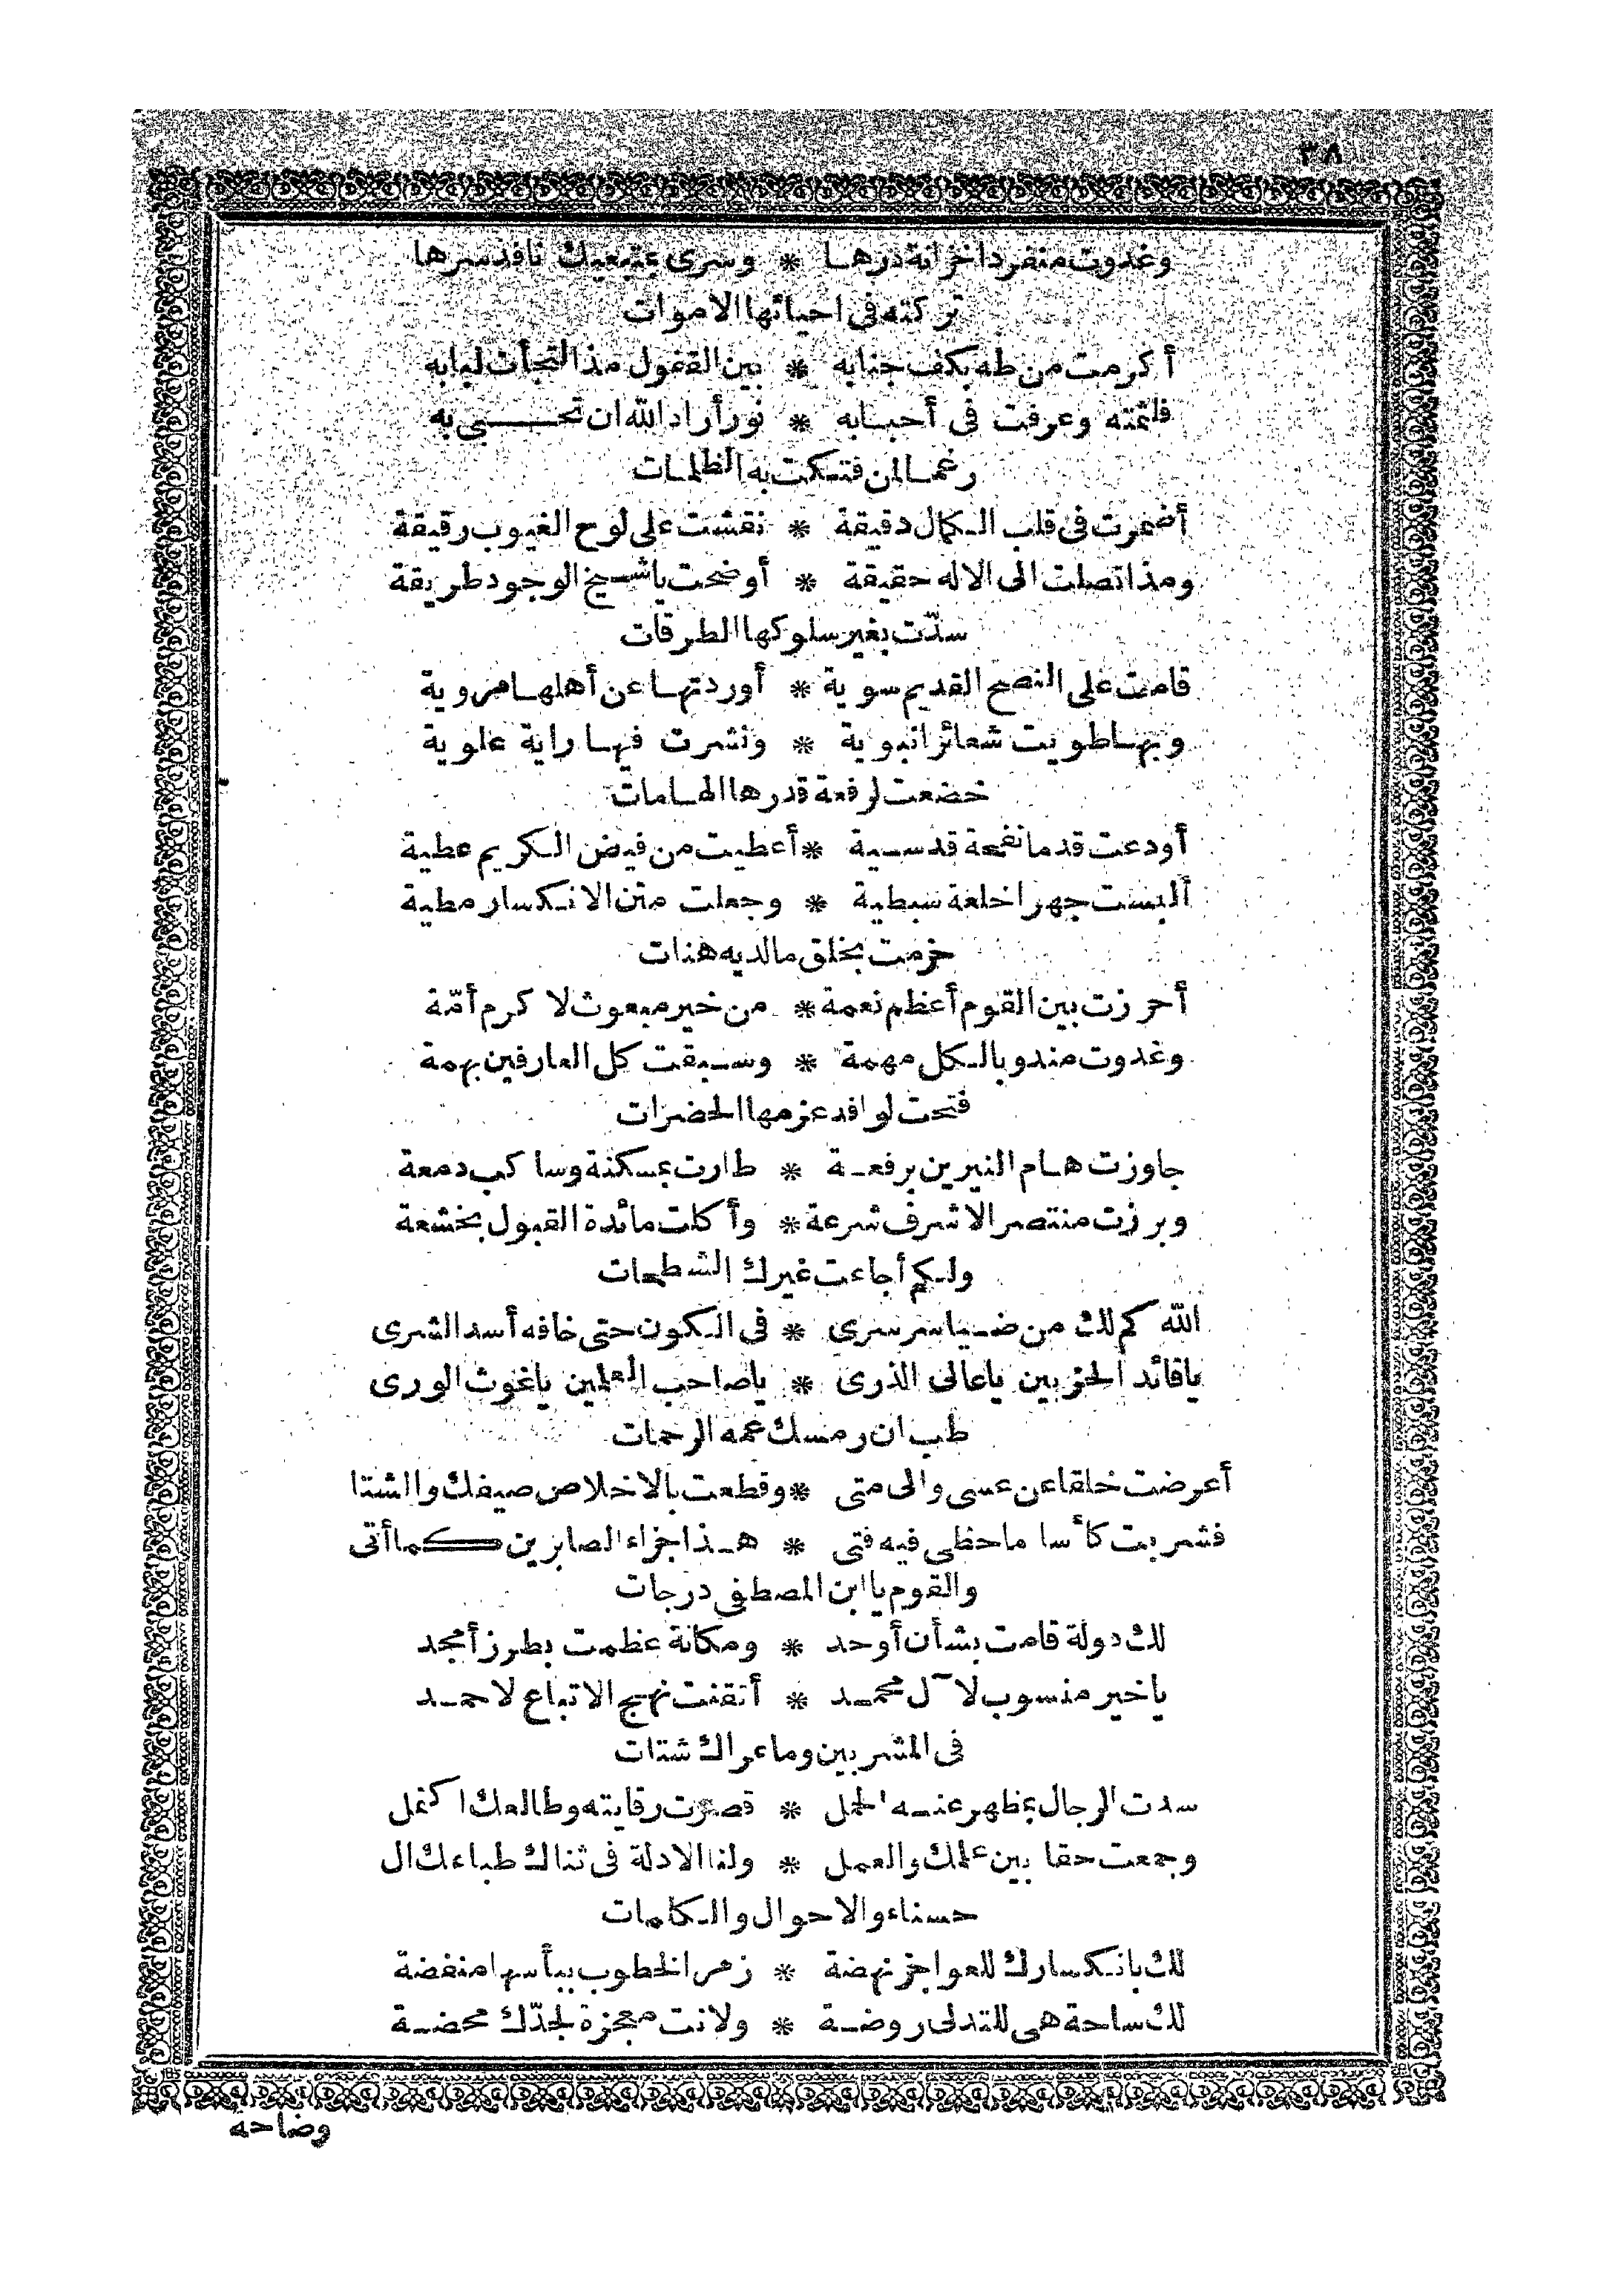 ٣٨
وغدوت منفردا خزانة درها * وسرى بمتبعيك نافذ سرها
تركته فى احيائها الاموات
أكرمت من طه بكف جنابه * بين القفول مذ التجأت لبابه
فلثمته وعرفت فى أحبابه * نور أراد الله ان تحبى به
رغما لمن فتكت به الظلمات
أضمرت فى قلب الكمال دقيقة * نقشت على لوح الغيوب رقيقة
ومذ اتصلت الى الاله حقيقة * أوضحت يا شيخ الوجود طريقة
سدّت بغير سلوكها الطرقات
قامت على النصح القديم سوية * أوردتها عن أهلها مروية
وبها طويت شعائرا نبوية * ونشرت فيها راية علوية
خضعت لرفعة قدرها الهامات
أودعت قدما نفحة قدسية * أعطيت من فيض الكريم عطية
ألبست جهرا خلعة سبطية * وجعلت متن الانكسار مطية
خرمت بخلق ما لديه هنات
أحرزت بين القوم أعظم نعمة * من خير مبعوث لاكرم أمّة
وغدوت مندوبا لكل مهمة * وسبقت كل العارفين بهمة
فتحت لوافد عزمها الحضرات
جاوزت هام النيرين برفعة * طارت بمسكنة وساكب دمعة
وبرزت منتصر الاشرف شرعة * وأكلت مائدة القبول بخشعة
ولكم أجاءت غيرك الشطحات
الله كم لك من ضيا سر سرى * فى الكون حتى خافه أسد الشرى
يا قائد الحزبين يا عالى الذرى * يا صاحب العلمين يا غوث الورى
طب ان رمسك عمه الرحمات
أعرضت خلقا عن عسى والى متى * وقطعت بالاخلاص صيفك والشتا
فشربت كأسا ما حظى فيه فتى * هذا جزاء الصابرين كما أتى
والقوم يا ابن المصطفى درجات
لك دولة قامت بشأن أوحد * ومكانة عظمت بطرز أمجد
يا خير منسوب لآل محمد * أتقنت نهج الاتباع لاحمد
فى المشربين وما عراك شتات
سدت الرجال بمظهر عنه الحمل * قصرت رقايته وطالعك اكتمل
وجمعت حقا بين علمك والعمل * ولنا الادلة فى ثناك طباءك ال
حسناء والاحوال والكلمات
لك بانكسارك للعواجز نهضة * زهر الخطوب ببأسها منفضة
لك ساحة هى للتدلى روضة * ولانت معجزة لجدّك محضة
وضاحة